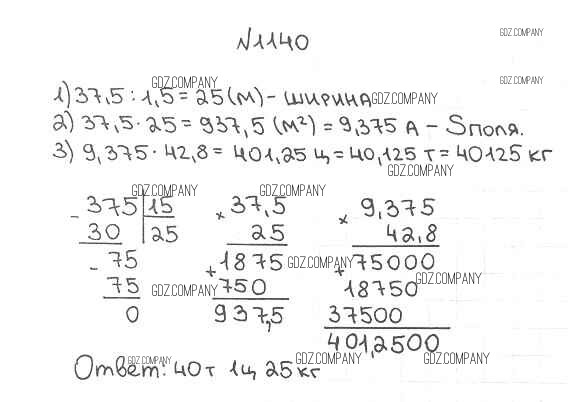 N1140
GDZ.COMPANY
GDZ.COMPANY
GDZ.COMPANY
1) 37,5 : 1,5 = 25 (м) - ширина GDZ.COMPANY
2) 37,5 · 25 = 937,5 (м²) = 9,375 а - Sполя.
3) 9,375 · 42,8 = 401,25 ц = 40,125 т = 40125 кг
GDZ.COMPANY
GDZ.COMPANY GDZ.COMPANY
- 375 | 15
30 | 25
- 75
75
0
× 37,5
25
1875 GDZ.COMPANY
+ 750
937,5
× 9,375
42,8
+ 75000
18750 GDZ.COMPANY
37500
401,2500
GDZ.COMPANY
GDZ.COMPANY GDZ.COMPANY GDZ.COMPANY
Ответ: 40 т 1 ц 25 кг